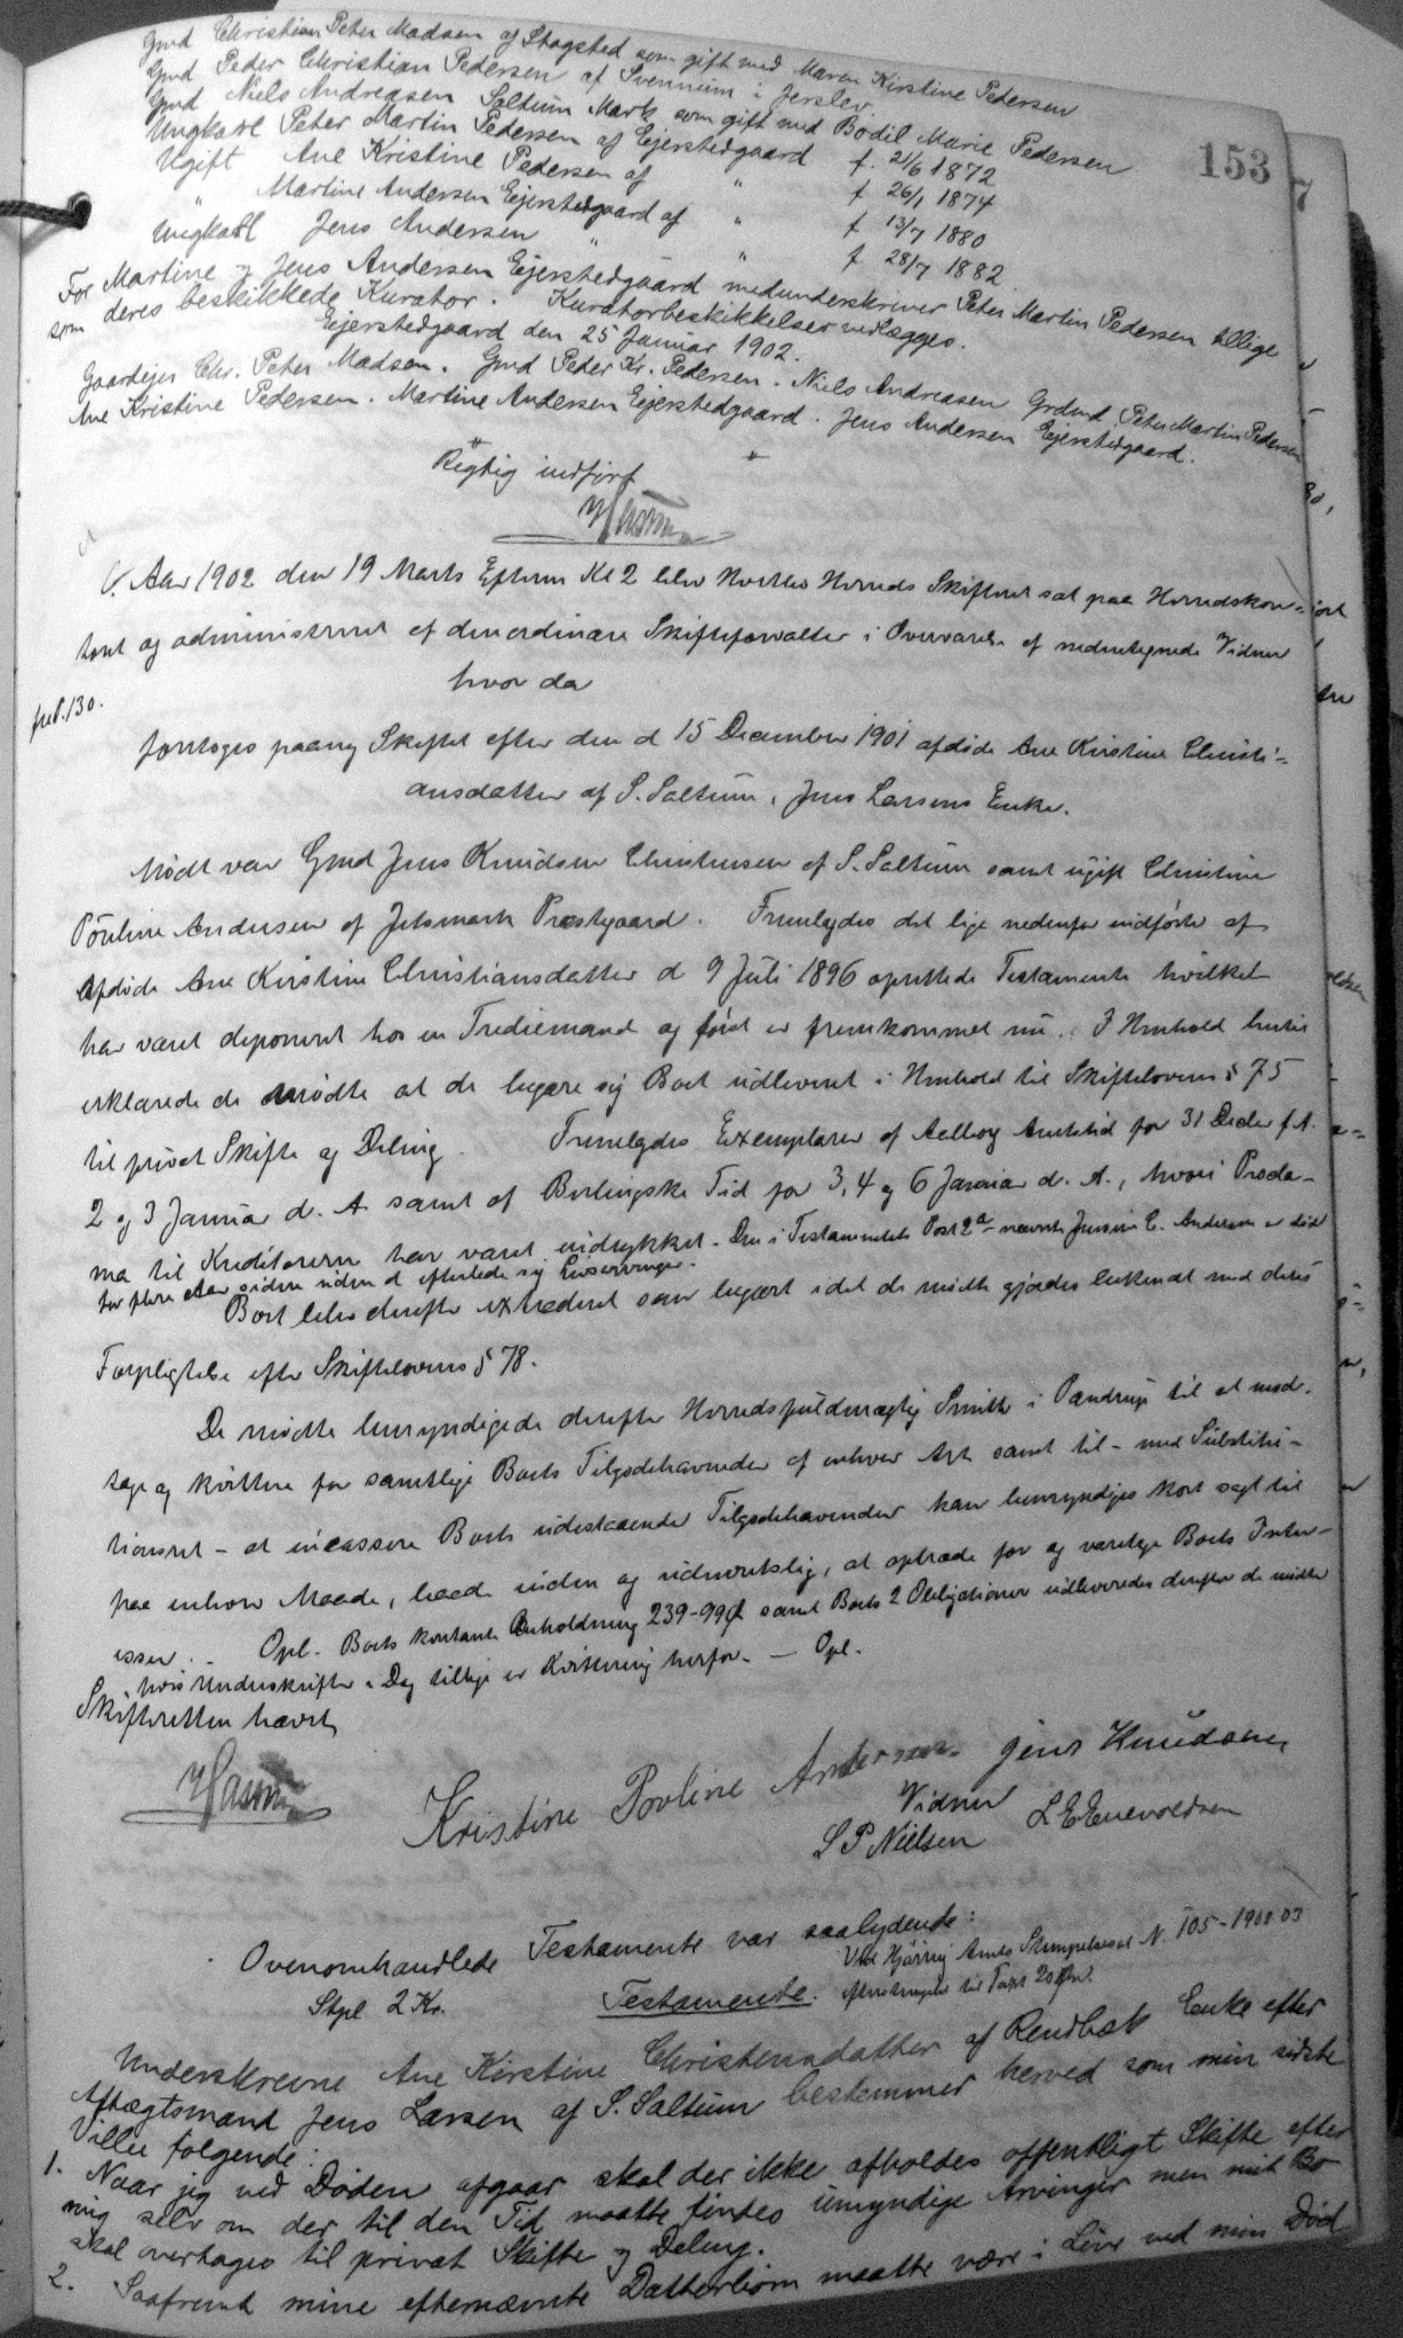 153
Gmd Christian Peter Madsen af Stagsted som gift med Maren Kirstine Pedersen
Gmd Peder Christian Pedersen af Svennum i Jerslev
Gmd Niels Andreasen Saltum Mark som gift med Bodil Marie Pedersen
Ungkarl Peter Martin Pedersen af Ejerstedgaard f. 21/6 1872
Ugift Ane Kristine Pedersen af " f 26/1 1874
" Martine Andersen Ejerstedgaard af " f 13/7 1880
Ungkarl Jens Andersen " " f. 28/7 1882
For Martine og Jens Andersen Ejerstedgaard medunderskriver Peter Martin Pedersen tillige
som deres beskikkede Kurator. Kuratorbeskikkelser vedlægges.
Ejerstedgaard den 25 Januar 1902.
Gaardejer Chr. Peter Madsen. Gmd Peder Kr. Pedersen. Niels Andreasen Grdmd. Peter Martin Pedersen
Ane Kristine Pedersen. Martine Andersen Ejerstedgaard. Jens Andersen Ejerstedgaard.
Rigtig indført
Aar 1902 den 19 Marts Efterm Kl 2 blev Hvetbo Herreds Skifteret sat paa Herredskon-
toret og administreret af den ordinære Skifteforvalter i Overværelse af nedentegnede Vidner
hvor da
fol. 130.
foretoges paany Skiftet efter den d 15 December 1901 afdøde Ane Kirstine Christi-
ansdatter af S. Saltum, Jens Larsens Enke.
Mødt var Gmd Jens Knudsen Christensen af S. Saltum samt ugift Christine
Pouline Andersen af Jetsmark Præstegaard. Fremlagdes det lige nedenfor indførte af
afdøde Ane Kirstine Christiansdatter d 9 Juli 1896 oprettede Testamente hvilket
har været deponeret hos en Trediemand og først er fremkommet nu. I Henhold hertil
erklærede de mødte at de begære sig Boet udleveret i Henhold til Skiftelovens § 75
til privat Skifte og Deling. Fremlagdes Exemplarer af Aalborg Amtstid for 31 Decbr f. A.
2 og 3 Januar d. A samt af Berlingske Tid for 3, 4 og 6 Januar d. A., hvori Procla-
ma til Kreditorerne har været indrykket. Den i Testamentets Post 2a nævnte C. Andersen er død
for flere Aar siden uden at efterlade sig Livsarvinger.
Boet blev derefter extraderet som begært idet de mødte gjordes bekendt med deres
Forpligtelse efter Skiftelovens § 78.
De mødte bemyndigede derefter Herredsfuldmægtig Smith i Pandrup til at mod-
tage og kvittere for samtlige Boets Tilgodehavender af enhver Art samt til - med Substitu-
tionsret - at incassere Boets udestaaende Tilgodehavender han bemyndiges kort sagt til
paa enhver Maade, baade inden og udenretslig, at optræde for og varetage Boets Inter-
esser. - Opl. Boets kontante Beholdning 239-99 samt Boets 2 Obligationer udleveredes derefter de mødte
hvis Underskrifter i Dag tillige er Kvittering herfor. - Opl.
Skifteretten hævet
Kristine Povline Andersen Jens Knudsen
Vidner
S P Nielsen L E Enevoldsen
Ovenomhandlede Testamente var saalydende:
Stpl 2 Kr. Testamente. Ved Hjørring Amts N. 105-1902 03
til Taxt 20 Øre.
Underskrevne Ane Kirstine Christensdatter af Rendbæk Enke efter
Aftægtsmand Jens Larsen af S. Saltum bestemmer herved som min sidste
Villie følgende:
1. Naar jeg ved Døden afgaar skal der ikke afholdes offentligt Skifte efter
mig selv om der til den Tid maatte findes umyndige Arvinger men mit Bo
skal overtages til privat Skifte og Deling.
2. Saafremt mine efternævnte Datterbørn maatte være i Live ved min Død